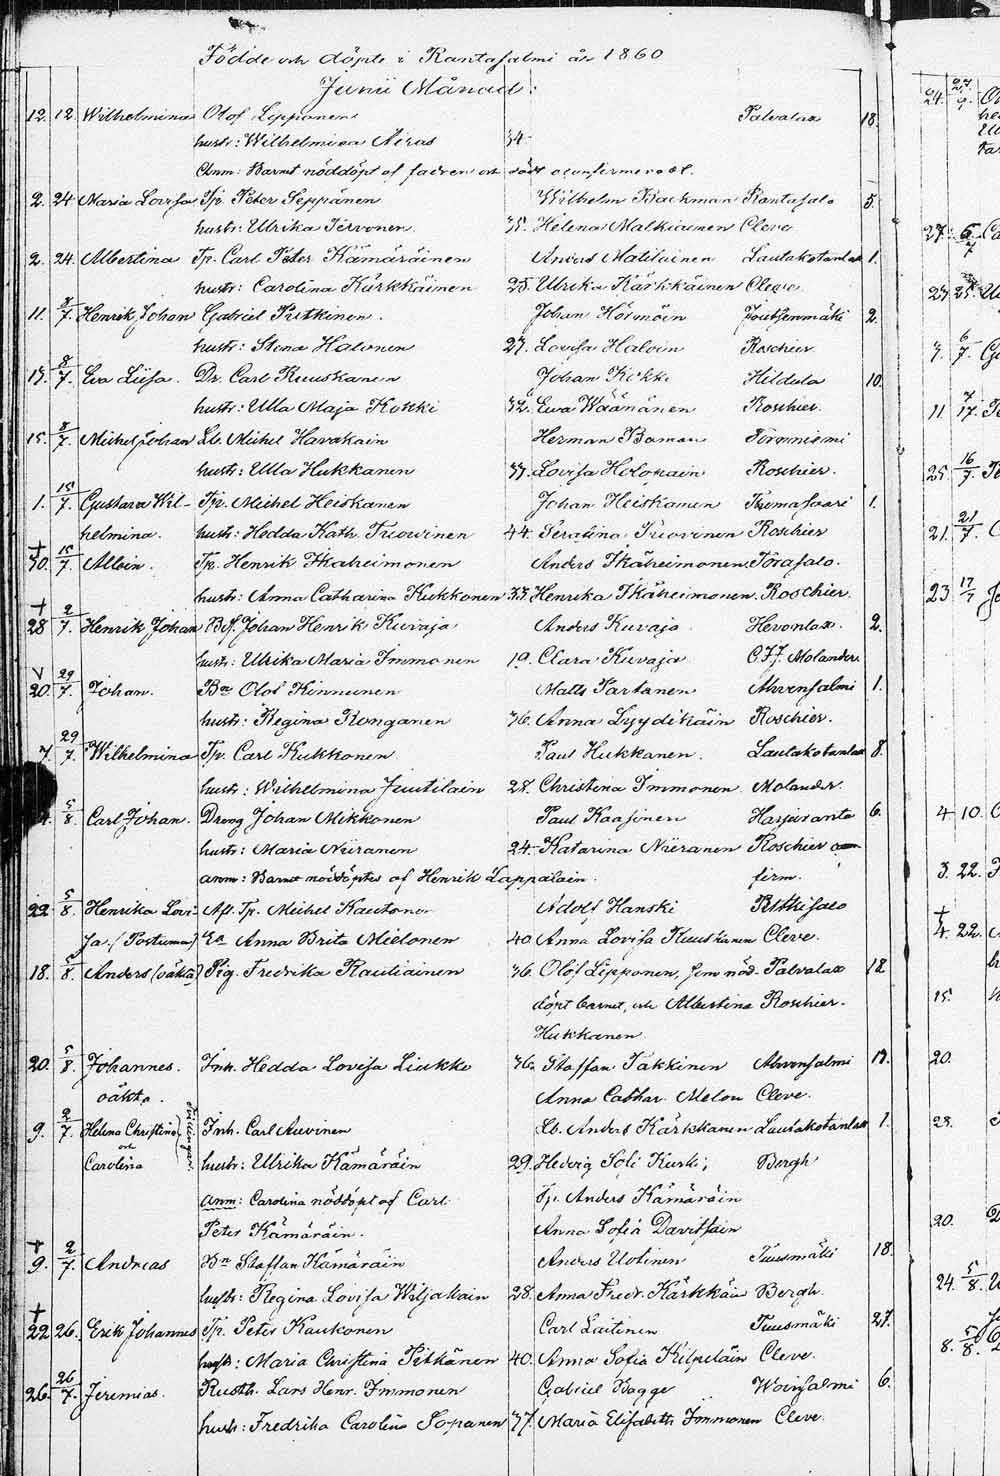 Födde och döpte i Rantasalmi år 1860
Junii Månad:
12. 12. Wilhelmina Olof Lipponen Palvalax 18.
hustr: Wilhelmina 34
Anm: Barnet nöddöpt af fadren och
2. 24. Maria Lovisa Tp. Peter Seppänen Wilhelm Backman Rantasalo 5.
hustr: Ulrika Tervonen 35. Helena Malkiainen Cleve
2. 24. Albertina Tp. Carl Peter Kämäräinen Anders Matilainen Lautakotanlax 1.
hustr: Carolina Kärkkäinen 25. Ulrika Kärkkäinen Cleve
11. 8/7. Henrik Johan Gabriel Pitkinen. Johan Joutsenmäki 2.
hustr: Stena Halonen 27. Lovisa Haloin Roschier
8/7. Eva Liisa. Dr. Carl Ruuskanen Johan Kokki Hildula 10.
hustr: Ulla Maja Kokki 32. Ewa Wäänänen Roschier.
15. 8/7. Michel Johan Lb. Michel Havakain Herman Boman
hustr: Ulla Hukkanen Lovisa Holopain Roschier.
1. 15/7. Gustava Wil- Tp. Michel Heiskanen Johan Heiskanen Tuomasaari 1.
helmina. hustr: Hedda Kath. Tuovinen 44. Serafina Tuovinen Roschier
+
30. 15/7. Albin. Tp. Henrik Ikäheimonen Anders Ikäheimonen Torasalo.
hustr: Anna Catharina Kukkonen 33. Henrika Ikäheimonen. Roschier.
+
28 2/7. Henrik Johan Johan Henrik Kuvaja Anders Kuvaja Hevonlax. 2.
hustr: Ulrika Maria Immonen 19. Clara Kuvaja Molander
20. 29/7. Johan. Bn Olof Kinnunen Matts Partanen Ahvensalmi 1.
hustr: Regina Ronganen 36. Anna Lyydikäin Roschier.
7. 29/7. Wilhelmina Tp. Carl Kukkonen Paul Hukkanen. Lautakotanlax 8.
hustr: Wilhelmina Jentilain 28. Christina Immonen Molander.
5/8. Carl Johan. Dreng Johan Mikkonen Paul Kaasinen Harjuranta 6.
hustr: Maria Niiranen 24. Katarina Niiranen Roschier con
anm: Barnet nöddöptes af Henrik Lappalain. firm.
22. 5/8. Henrika Lovi- Afl. Tp. Michel Kautonen Adolf Hanski
sa. (Postuma) Ea Anna Brita Mielonen 40. Anna Lovisa Ruuskanen Cleve.
18. 5/8. Anders (oäkta) Pig. Fredrika Rautiainen 36. Olof Lipponen, som nöd- Palvalax 18
döpt barnet, och Albertina Roschier.
Hukkanen
20. 5/8. Johannes. Inh. Hedda Lovisa Liukko 36. Staffan Takkinen Ahvensalmi
oäkta. Anna Cathar. Melon Cleve.
9. 2/7. Helena Christina Inh. Carl Auvinen Lb. Anders Kärkkanen Lautakotanlax 1.
och tvillingar
Carolina hustr: Ulrika Kämäräin 29. Hedvig Sofi Kurki; Bergh
anm: Carolina nöddöpt af Carl Tp. Anders Kämäräin
Peter Kämäräin. Anna Sofia Davitsain
+
9. 2/7. Andreas Bn Staffan Kämäräin Anders Uotinen Tuusmäki 18.
hustr: Regina Lovisa Wiljakain 28. Anna Fredr. Kärkkäin Bergh.
+
22 26. Erik Johannes Tp. Peter Kaukonen Carl Laitinen Tuusmäki 27.
hustr: Maria Christina Pitkänen 40. Anna Sofia Kilpeläin Cleve.
26. 26/7. Jeremias. Rusth. Lars Henr. Immonen Gabriel Bagge Woinsalmi 6.
hustr: Fredrika Carolina Sopanen 37. Maria Elisabeth Immonen Cleve.